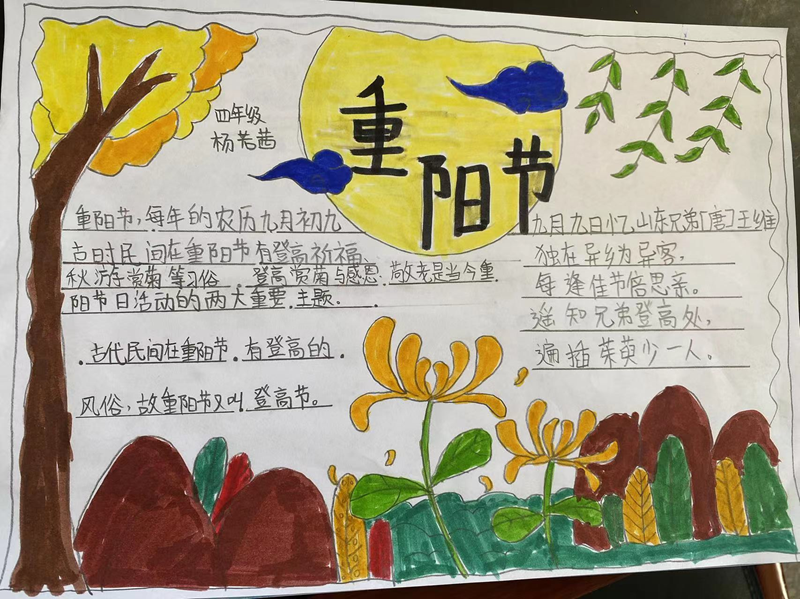 重阳节
四年级
杨若茜
重阳节,每年的农历九月初九
古时民间在重阳节有登高祈福、
秋游赏菊等习俗 . 登高赏菊与感恩 敬老是当今重
阳节日活动的两大重要 主题.
.古代民间在重阳节.有登高的.
风俗,故重阳节又叫.登高节。
九月九日忆山东兄弟[唐]王维
独在异乡为异客,
每逢佳节倍思亲。
遥知兄弟登高处,
遍插茱萸少一人。